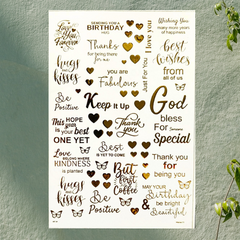 Love You Forever
SENDING FOR A
BIRTHDAY
HUGS
Thanks
for being there
for me
you are
Fabulous
I love you
Just For You
Wishing You
many more years
of happiness
best
wishes
from
all of us
hugs
&
kisses
Be
Positive
Keep it Up
God
bless
For
Special
This HOPE
is your best
ONE YET
Thank
you
Best
IS YET TO COME
Love
BELONGS WHERE
KINDNESS
is planted
But
First
Coffee
Thank you
for
being you
hugs
&
kisses
Be
Positive
MAY YOUR
Birthday
be bright
&
Beautiful